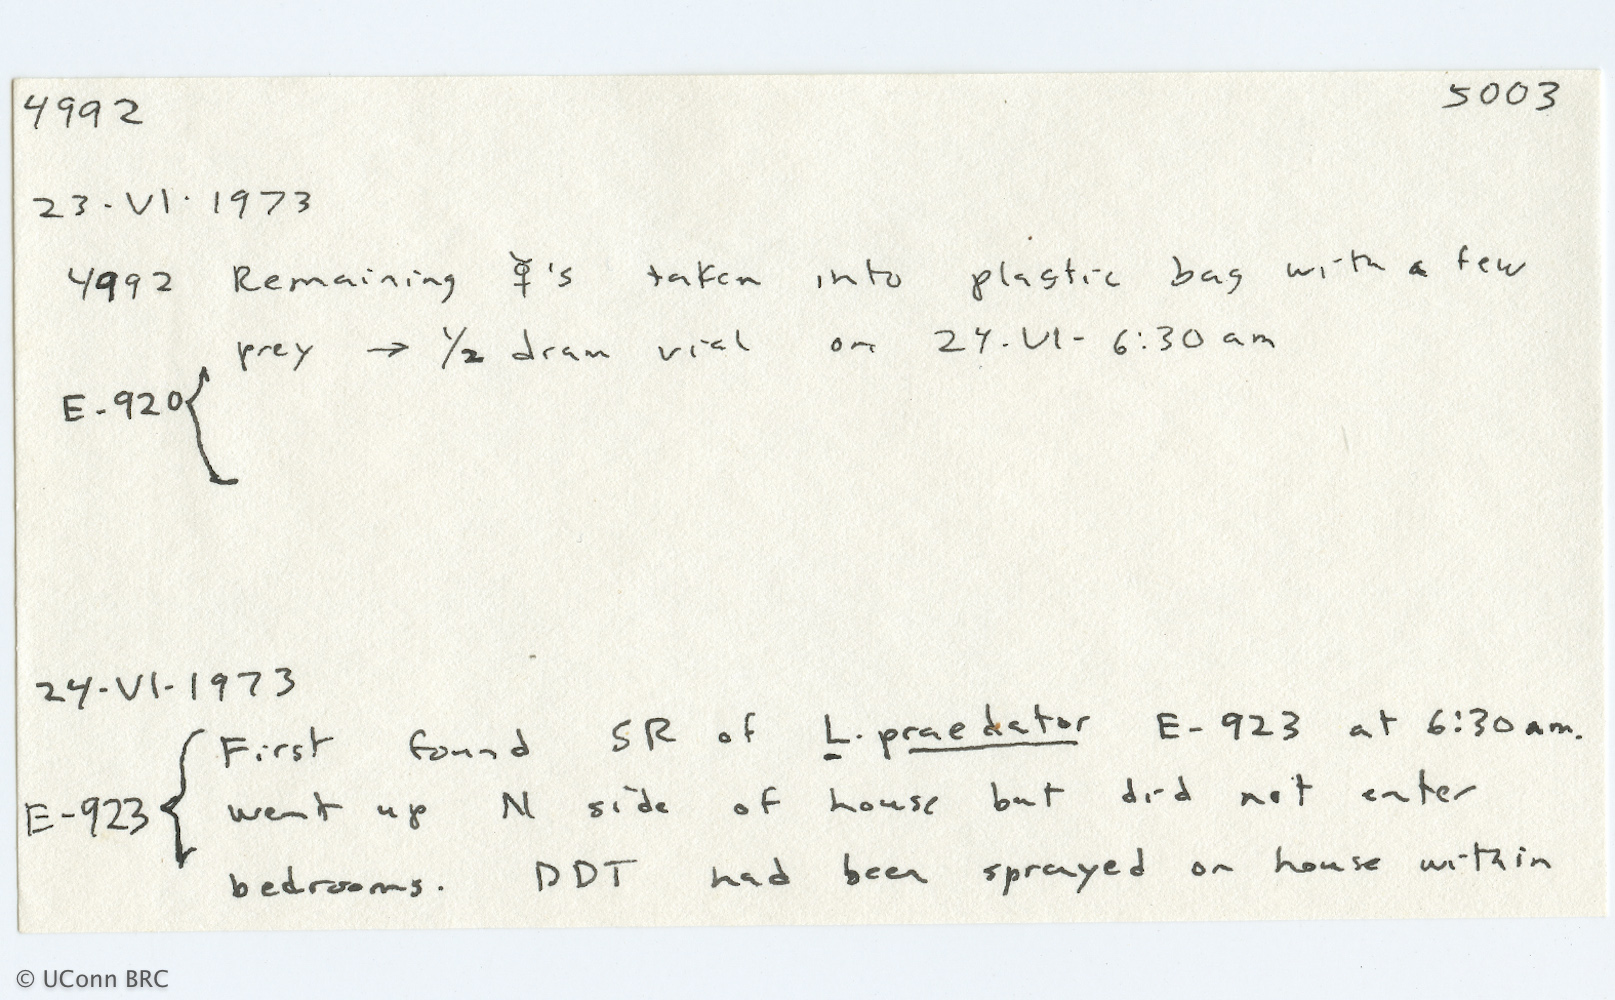 4992 5003
23-VI-1973
4992 Remaining ☿'s taken into plastic bag with a few
prey → 1/2 dram vial on 24-VI- 6:30 am
E-920
24-VI-1973
First found SR of L. praedator E-923 at 6:30 am.
E-923 went up N side of house but did not enter
bedrooms. DDT had been sprayed on house within
© UConn BRC